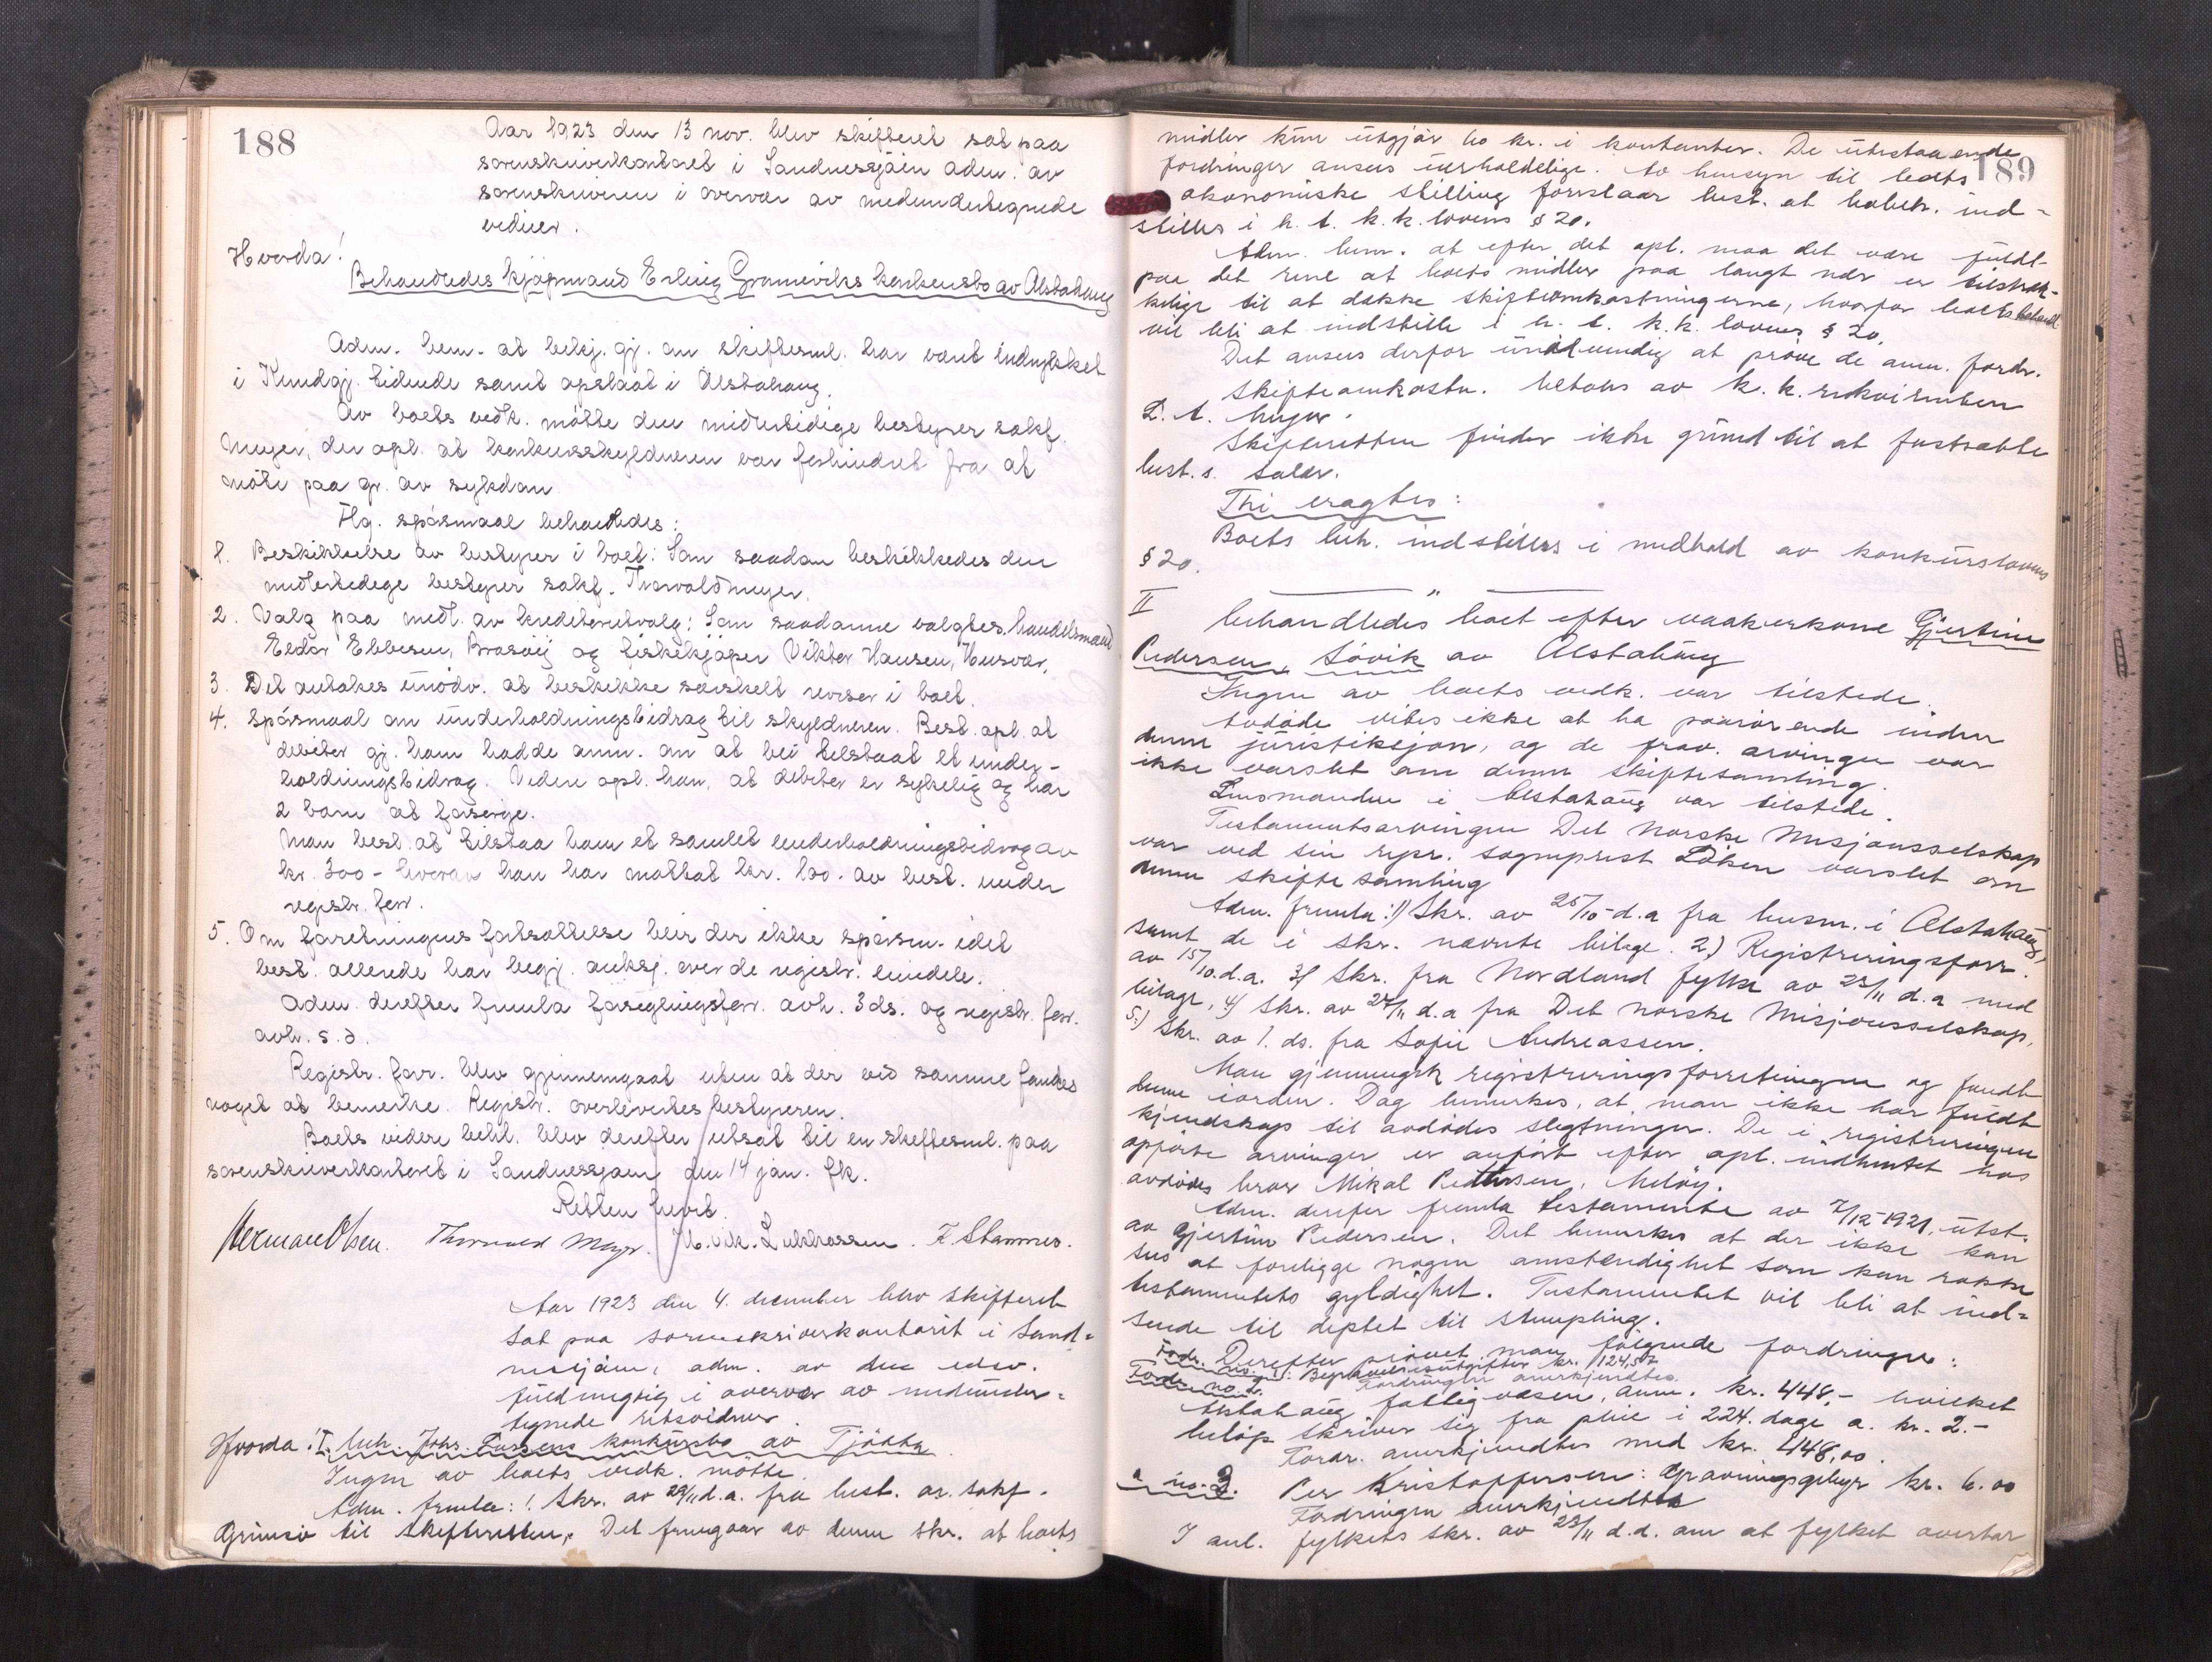 188
Aar 1923 den 13 nov. blev skifteret sat paa
sorenskriverkontoret i Sandnessjøen adm. av
sorenskriveren i overvær av medundertegnede
vidner.
Hvorda!
Behandledes kjøpmand Erling Gramevicks konkursbo av Alstahaug
Adm. bem. at bekj. gj. om skiftesml. har været indrykket
i Kundgj. tidende samt opslaat i Alstahaug.
Av boets vedk. møtte den midlertidige bestyrer sakf.
Meyer, der opl. at konkursskyldneren var forhindret fra at
møte paa gr. av sykdom
Flg. spørsmaal behandledes:
1. Beskikkelse av bestyrer i boet: Som saadan beskikkedes den
midlertidige bestyrer sakf. Thorvald Meyer.
2. Valg paa medl. av kreditorutvalg: Som saadanne valgtes handelsmand
Eldor Ebbesen, Brasøy og fiskekjøper Viktor Hansen, Husvær.
3. Det antokes unødv. at beskikke særskelt revisor i boet.
4. Spørsmaal om underholdningsbidrag til skyldneren. Best. opl. at
debitor gj. ham hadde anm. om at bli tilstaat et under-
holdningsbidrag. Videre opl. han, at debitor er sykelig og har
2 barn at forsørge.
Man besl. at tilstaa ham et samlet underholdningsbidrag av
kr. 300 - hvorav han har mottat kr. 100. av best. under
registr. forr.
5. Om forretningens fortsættelse blir der ikke spørsm. idet
best. allerede har begj. auksj. over de registr. eiendele.
Adm. derefter fremla forseglingsforr. avh. 3 ds. og registr. forr.
avh. s. d.
Registr. forr. blev gjennemgaat uten at der ved samme fandtes
noget at bemerke. Registr. overlevertes bestyreren.
Boets videre behl. blev derefter utsat til en skiftesml. paa
sorenskriverkontoret i Sandnessjøen den 14 jan. fk.
Retten hævet.
Herman Olsen. Thorvald Meyer. F. Stamnes.
Aar 1923 den 4. december blev skifteret
sat paa sorenskriverkontoret i Sand-
nessjøen, adm. av den edsv.
fuldmegtig i overvær av medunder-
tegnede retsvidner.
Hvorda: I. beh. Johs. Larsens konkursbo av Tjøtta
Ingen av boets vedk. møtte.
Adm. fremla: 1. Skr. av 29/11 d.a. fra best. o.r. sakf.
Grimsø til skifteretten. Det fremgaar av denne skr. at boets
189
midler kun utgjør 60 kr. i kontanter. De utestaaende
fordringer ansees uerholdelige. Av hensyn til boets
økonomiske stilling foreslaar best. at bobeh. ind-
stilles i h. t. k.k. lovens § 20.
Adm. bem. at efter det opl. maa det være fuldt
paa det rene at boets midler paa langt nær er tilstræk-
kelige til at dække skifteomkostningerne, hvorfor boets behandl.
vil bli at indstille i h. t. k.k. lovens § 20.
Det ansees derfor unødvendig at prøve de anm. fordr.
Skifteomkostn. betales av k. k. rekvirenten
L. A. Meyer.
Skifteretten finder ikke grund til at fastsætte
best.s salær.
Thi eragtes:
Boets beh. indstilles i medhold av konkurslovens
§ 20.
II
behandledes boet efter vaakerkone Gjertine
Pedersen, Søvik av Alstahaug
Ingen av boets vedk. var tilstede.
Avdøde vites ikke at ha paarørende inden
denne jurisdiksjon, og de frav. arvinger var
ikke varslet om denne skiftesamling.
Lensmanden i Alstahaug var tilstede.
Testamentsarvingen Det Norske Misjonsselskap
var ved sin repr. sogneprest Løken varslet om
denne skiftesamling
Adm. fremla: 1) Skr. av 25/10 d.a fra lensm. i Alstahaug,
samt de i skr. nævnte bilage. 2) Registreringsforr.
av 15/10. d.a. 3) Skr. fra Nordland fylke av 23/11 d.a med
bilage, 4) Skr. av 24/11 d.a fra Det norske Misjonsselskap,
5.) Skr. av 1. ds. fra Sofie Andreassen.
Man gjennemgik registreringsforretningen og fandt
denne iorden. Dog bemerkes, at man ikke har fuldt
kjendskap til avdødes slegtninger. De i registreringen
opførte arvinger er anført efter opl. indhentet hos
avdødes bror Mikal Pedersen, Meløy.
Adm. derefter fremla testamente av 7/12-1921, utst.
av Gjertine Pedersen. Det bemerkes at der ikke kan
sees at foreligge nogen omstændighet som kan rokke
testamentets gyldighet. Testamentet vil bli at ind-
sende til deptet til stempling.
Derefter prøvet man følgende fordringer:
Fordr. no. 1: Begravelsesutgifter kr. 124,57
Fordringen anerkjendtes.
Fordr. no. 2. Alstahaug fattigvæsen, anm. kr. 448,- hvilket
beløp skriver seg fra pleie i 224. dage a. kr. 2.-
Fordr. anerkjendtes med kr. 448,00.
" no. 3. Per Kristoffersen: Gravningsgebyr kr. 6.00
Fordringen anerkjendtes
I anl. fylkets skr. av 23/11 d.d. om at fylket overtar